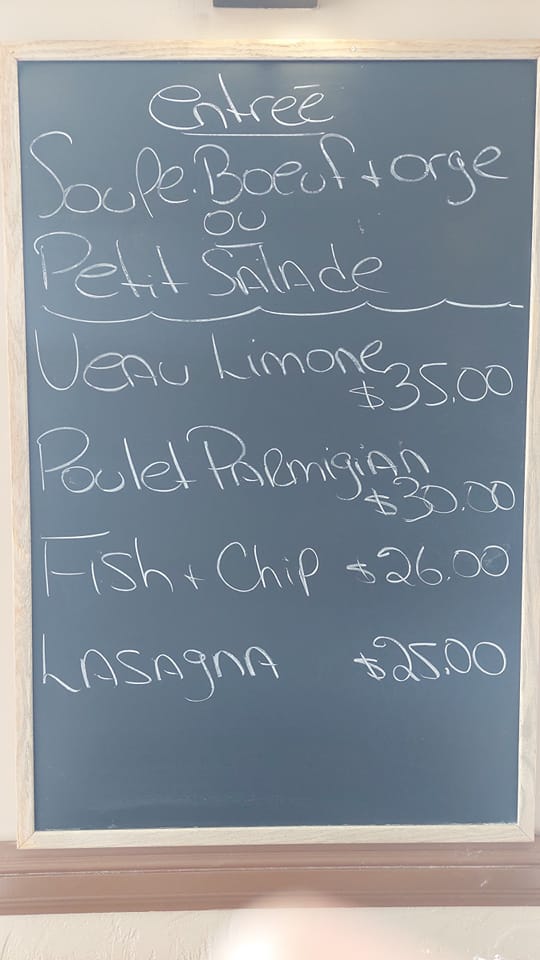 Entrée
Soupe. Boeuf + orge
ou
Petit Salade
Veau Limone
$35.00
Poulet Parmigian
$30.00
Fish + Chip $26.00
Lasagna $25.00